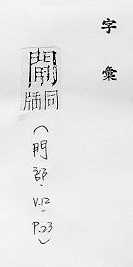 字彙
同
(門部.V.12.P.23)